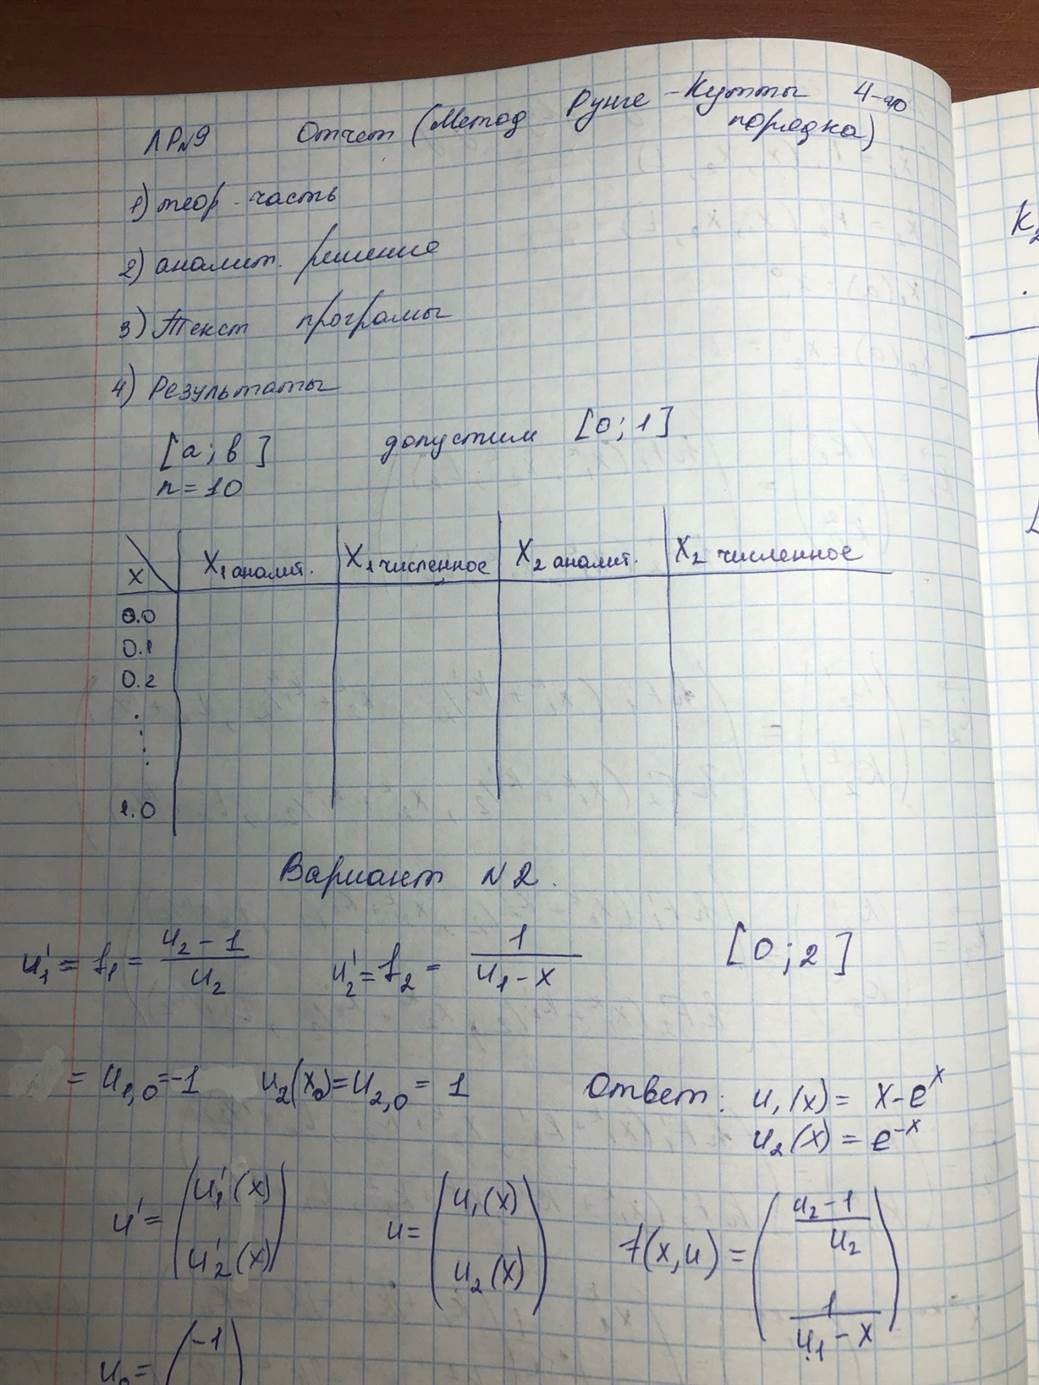 ЛР№9 Отчет (Метод Рунге-Кутты 4-го
порядка)
1) теор. часть
2) аналит. решение
3) Текст програмы
4) Результаты
[a; b] допустим [0; 1]
n = 10
x X₁ аналит. X₁ численное X₂ аналит. X₂ численное
0.0
0.1
0.2
.
.
.
1.0
Вариант №2.
u₁' = f₁ = (u₂ - 1)/u₂ u₂' = f₂ = 1/(u₁ - x) [0; 2]
= u₁,₀ = -1 u₂(x₀) = u₂,₀ = 1 Ответ: u₁(x) = x - eˣ
u₂(x) = e⁻ˣ
u' = (u₁'(x) u₂'(x)) u = (u₁(x) u₂(x)) f(x, u) = ((u₂ - 1)/u₂ 1/(u₁ - x))
u₀ = (-1
K₂